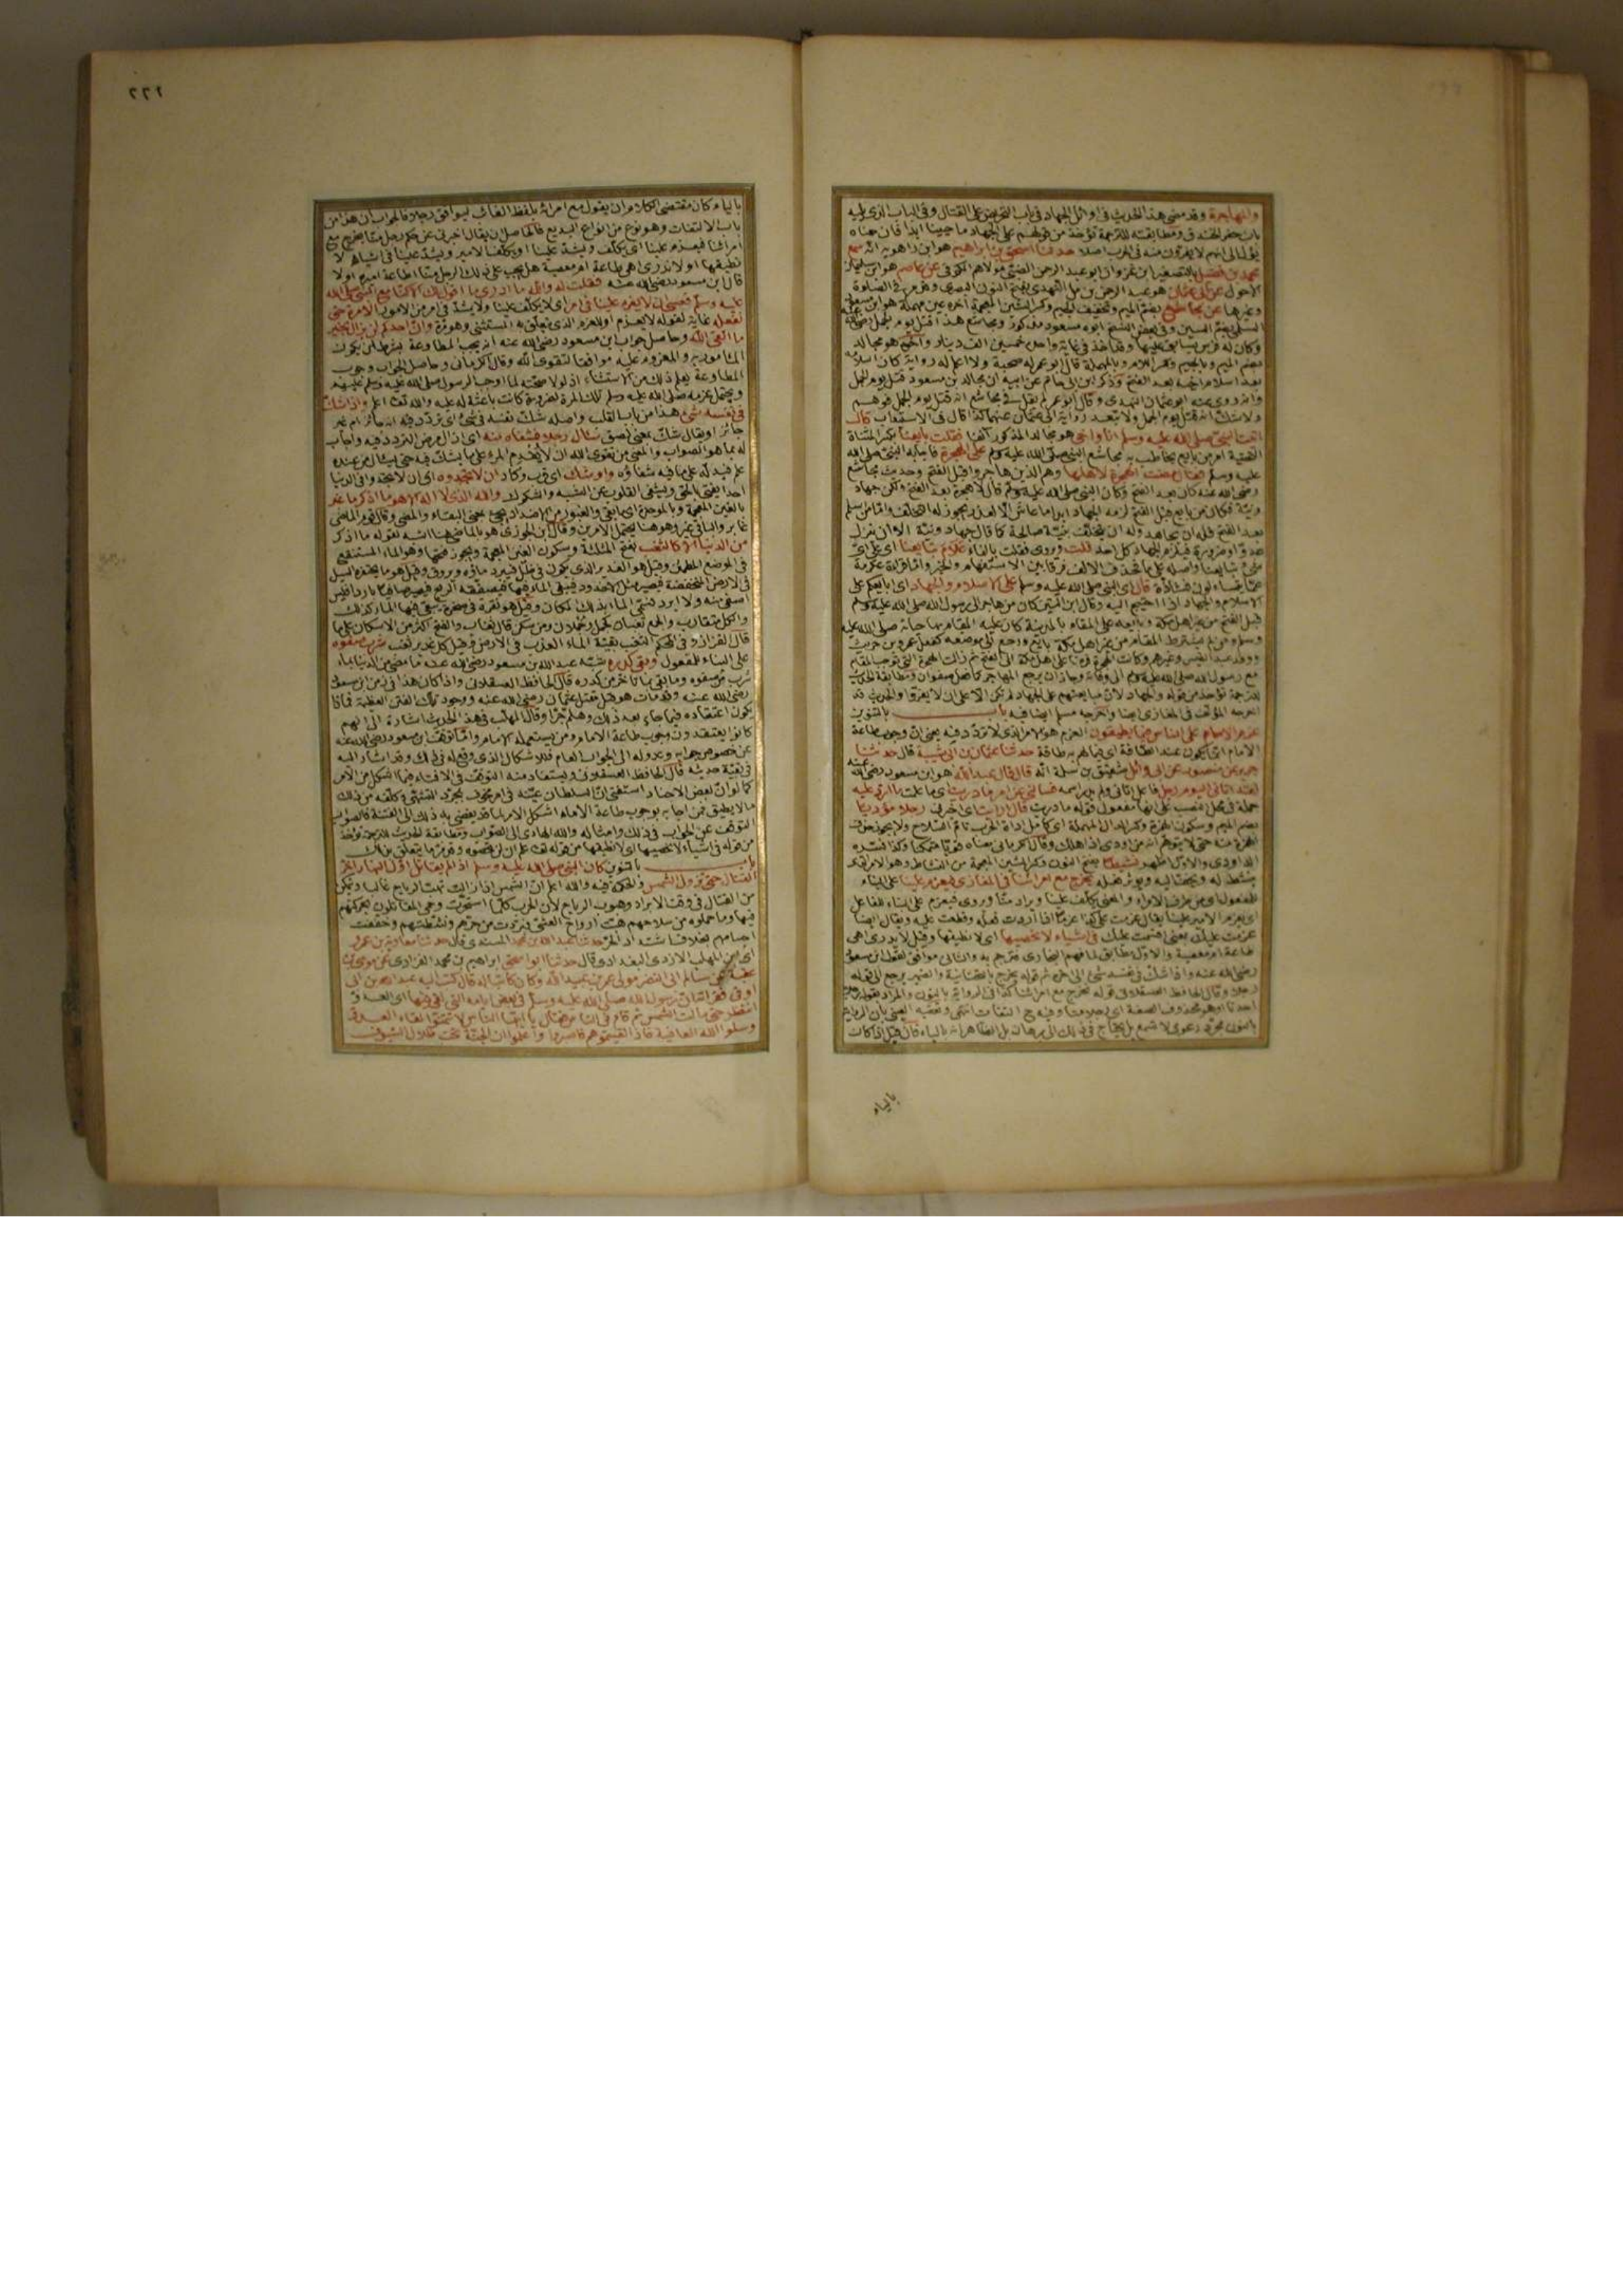 والمهاجرة وقد مضى هذا الحديث في اوائل الجهاد في باب التحريض على القتال وفي الباب الذي يليه
باب حفر الخندق ومطابقته للترجمة تؤخذ من قولهم على الجهاد ما حيينا ابدا فان معناه
يؤل الى انهم لا يفرون منه في الحرب اصلا حدثنا اسحق بن ابراهيم هو ابن راهويه انه سمع
محمد بن فضيل بالتصغير ابن غزوان ابو عبد الرحمن الضبي مولاهم الكوفي عن عاصم هو ابن سليمان
الاحول عن ابي عثمان هو عبد الرحمن بن مل النهدي بفتح النون البصري
وغيرها عن مجاشع بضم الميم وتخفيف الجيم وكسر الشين المعجمة آخره عين مهملة هو ابن مسعود
السلمي بضم السين
وكان له فرس يسابق عليها وقد اخذ في غاية واحدة خمسين الف دينار واخيه هو مجالد
بضم الميم وبالجيم وكسر اللام وبالمهملة قال ابو عمر له صحبة ولا اعلم له رواية كان اسلامه
بعد اسلام اخيه بعد الفتح وذكر ابن ابي حاتم عن ابيه ان مجالد بن مسعود قتل يوم الجمل
وانه روى عنه ابو عثمان النهدي وقال ابو عمر لم يقل في مجاشع انه قتل يوم الجمل فوهم
ولا شك انه قتل يوم الجمل ولا تبعد رواية ابي عثمان عنهما كذا قال في الاستيعاب قال
اتيت النبي صلى الله عليه وسلم انا واخي هو مجالد المذكور آنفا فقلت بايعنا بكسر المثناة
التحتية امر من بايع يخاطب به مجاشع النبي صلى الله عليه وسلم على الهجرة فاجابه النبي صلى الله
عليه وسلم فقال مضت الهجرة لاهلها وهم الذين هاجروا قبل الفتح وحديث مجاشع
رضي الله عنه كان بعد الفتح وكان النبي صلى الله عليه وسلم قال لا هجرة بعد الفتح ولكن جهاد
ونية فكان من بايع قبل الفتح لزمه الجهاد ابدا ما عاش الا لعذر يجوز له التخلف واما من اسلم
بعد الفتح فله ان يجاهد وله ان يتخلف بنية صالحة كما قال جهاد ونية الا ان ينزل
عدو او ضرورة فيلزم الجهاد كل احد قلت وروى فقلت بالفاء علام تبايعنا اي على اي
شيء تبايعنا واصله على ما فحذف الالف فرقا بين الاستفهام والخبر واما قراءة عكرمة
عما يتساءلون فنادرة قال اي النبي صلى الله عليه وسلم على الاسلام والجهاد اي ابايعكم على
الاسلام والجهاد اذا احتيج اليه وقال ابن التين كان من هاجر الى رسول الله صلى الله عليه وسلم
قبل الفتح من غير اهل مكة وبايعه على المقام بالمدينة كان عليه المقام بها حياته صلى الله عليه
وسلم ومن لم يشترط المقام من غير اهل مكة بايع ورجع الى موضعه كفعل عمرو بن حريث
ووفد عبد القيس وغيرهم وكانت الهجرة فرضا على اهل مكة الى الفتح ثم زالت الهجرة التي توجب المقام
مع رسول الله صلى الله عليه وسلم الى وفاته وجاز ان يرجع المهاجر كما فعل صفوان ومطابقة الحديث
للترجمة تؤخذ من قوله والجهاد لان مبايعتهم على الجهاد لم تكن الا على ان لا يفروا والحديث قد
اخرجه المؤلف في المغازي ايضا واخرجه مسلم ايضا فيه باب بالتنوين
عزم الامام على الناس فيما يطيقون العزم هو الامر الذي لا تردد فيه يعني ان وجوب طاعة
الامام انما يكون عند الطاقة اي فيما لهم به طاقة حدثنا عثمان بن ابي شيبة قال حدثنا
جرير عن منصور عن ابي وائل شقيق بن سلمة انه قال قال عبد الله هو ابن مسعود رضي الله عنه
لقد اتاني اليوم رجل فاعل اتاني ولم يدر اسمه فسألني عن امر فما دريت اي ما علمت ما ارد عليه
جملة في محل النصب على انها مفعول قوله ما دريت قال ارايت اي اخبرني رجلا مؤديا
بضم الميم وسكون الهمزة وكسر الدال المهملة اي كامل اداة الحرب تام السلاح ولا يجوز حذف
الهمزة منه حتى لا يتوهم انه من اودى اذا هلك وقال الكرماني معناه قويا متمكنا وكذا فسره
الداودي والاول اظهر نشيطا بفتح النون وكسر الشين المعجمة من النشاط وهو الامر الذي
ينشط له ويخف اليه ويؤثر فعله يخرج مع امرائنا في المغازي فيعزم علينا على البناء
اي يعزم الامير علينا يقال عزمت على كذا عزما اذا اردت فعله وقطعت عليه ويقال ايضا
عزمت عليك بمعنى اقسمت عليك في اشياء لا نحصيها اي لا نطيقها وقيل لا يدري اهي
طاعة ام معصية والاول مطابق لما فهم البخاري فترجم به والثاني موافق لقول ابن مسعود
رضي الله عنه واذا شك في نفسه شيء الى اخره ثم قوله يخرج بالتحتانية والضمير يرجع الى قوله
رجلا وقال الحافظ العسقلاني قوله نخرج مع امرائنا كذا في الرواية بالنون والمراد بقوله رجلا
احدنا او هو محذوف الصفة اي رجلا منا وفيه ح التفات انتهى وتعقبه العيني بان الرواية
بالنون مجرد دعوى لا تسمع بل يحتاج في ذلك الى برهان بل الظاهر انه بالياء قال قيل اذا كان
بالياء
٢٢٢
بالياء كان مقتضى الكلام ان يقول مع امرائه بلفظ الغائب ليوافق رجلا فالجواب ان هذا من
باب الالتفات وهو نوع من انواع البديع فالحاصل ان يقال اخبرني عن حكم رجل منا يخرج مع
امرائنا فيعزم علينا اي يكلف ويشد علينا او يكلفنا الامير ويشد علينا في اشياء لا
نطيقها او لا ندري اهي طاعة ام معصية هل يجب على ذلك الرجل منا اطاعة اميره او لا
قال ابن مسعود رضي الله عنه فقلت له والله ما ادري ما اقول لك الا انا كنا مع النبي صلى الله
عليه وسلم فعسى ان لا يعزم علينا في امر اي لا يكلف علينا ولا يشد في امر من الامور الا مرة حتى
نفعله غاية لقوله لا يعزم او للعزم الذي تعلق به المستثنى وهو مرة وان احدكم لن يزال بخير
ما اتقى الله وحاصل جواب ابن مسعود رضي الله عنه انه يجب المطاوعة بشرط ان يكون
المأمور به والمعزوم عليه موافقا لتقوى الله وقال الكرماني وحاصل الجواب وجوب
المطاوعة يعلم ذلك من الاستثناء اذ لولا صحته لما اوجب الرسول صلى الله عليه وسلم عليهم
ويحتمل عزمه صلى الله عليه وسلم تلك المرة لضرورة كانت باعثة له عليه والله تعالى اعلم واذا شك
في نفسه شيء هذا من باب القلب واصله شك نفسه في شيء اي تردد فيه انه جائز ام غير
جائز او يقال شك بمعنى لصق سأل رجلا فشفاه منه اي ازال مرض التردد فيه واجاب
له بما هو الصواب والمعنى من تقوى الله ان لا يقدم المرء على ما يشك فيه حتى يسأل من عنده
علم فيدله على ما فيه شفاؤه واوشك اي قرب وكاد ان لا تجدوه اي ان لا تجدوا في الدنيا
احدا يفتي بالحق ويشفي القلوب عن الشبه والشكوك والله الذي لا اله الا هو ما اذكر ما غبر
بالغين المعجمة وبالموحدة اي ما بقي والغبور من الاضداد يجئ بمعنى البقاء والمضي وقال قوم الماضي
غابر والباقي غبر وهو هنا يحتمل الامرين وقال ابن الجوزي هو بالماضي هنا اشبه لقوله ما اذكر
من الدنيا الا كالثغب بفتح المثلثة وسكون الغين المعجمة ويجوز فتحها وهو الماء المستنقع
في الموضع المطمئن وقيل هو الغدير الذي يكون في ظل فيبرد ماؤه ويروق وقيل هو ما يحتفره السيل
في الارض المنخفضة فيصير مثل الاخدود فيبقى الماء فيها فيصفقه الريح فيصير صافيا باردا فليس
اصفى منه ولا ابرد فسمي الماء بذلك المكان وقيل هو نقرة في صخرة يبقى فيها الماء كذلك
والكل متقارب والجمع ثغبان كحمل وحملان ومن سكن قال ثغاب والفتح اكثر من الاسكان
قال القزاز وفي المحكم الثغب بقية الماء العذب في الارض وقيل كل غدير ثغب شرب صفوه
على البناء للمفعول وبقي كدره شبه عبد الله بن مسعود رضي الله عنه ما مضى من الدنيا بماء
شرب من صفوه وما بقي بما تأخر من كدره قال الحافظ العسقلاني واذا كان هذا في زمن ابن مسعود
رضي الله عنه وقد مات هو قبل مقتل عثمان رضي الله عنه ووجود تلك الفتن العظيمة فماذا
يكون اعتقاده فيما جاء بعد ذلك وهلم جرا وقال المهلب في هذا الحديث اشارة الى انهم
كانوا يعتقدون وجوب طاعة الامام ومن يستعمله الامام وانما توقف ابن مسعود رضي الله عنه
عن خصوص جوابه وعدوله الى الجواب العام فللاشكال الذي وقع له في ذلك وقد اشار اليه
في بقية حديثه قال الحافظ العسقلاني ويستفاد منه التوقف في الافتاء فيما اشكل من الامر
كما لو ان بعض الاجناد استفتى ان السلطان عينه في امر مخوف بمجرد التشهي وكلفه من ذلك
ما لا يطيق فمن اجابه بوجوب طاعة الامام اشكل الامر لما قد يفضي به ذلك الى الفتنة فالصواب
التوقف عن الجواب في ذلك وامثاله والله الهادي الى الصواب ومطابقة الحديث للترجمة تؤخذ
من قوله في اشياء لا نحصيها اي لا نطيقها
باب بالتنوين كان النبي صلى الله عليه وسلم اذا لم يقاتل اول النهار اخر
القتال حتى تزول الشمس والحكمة فيه والله اعلم ان الشمس اذا زالت تهب الرياح غالبا ويتمكن
من القتال في وقت الابراد وهبوب الرياح لان الحرب كلما استحرت وحمي المقاتلون بحركتهم
فيها وما حملوه من سلاحهم هبت ارواح العشي فبردت من حرهم ونشطتهم وخففت
اجسامهم بخلاف اشتداد الحر حدثنا عبد الله بن محمد المسندي قال حدثنا معاوية بن عمرو
اي ابن المهلب الازدي البغدادي قال حدثنا ابو اسحق ابراهيم بن محمد الفزاري عن موسى بن
عقبة عن سالم ابي النضر مولى عمر بن عبيد الله وكان كاتبا له قال كتب اليه عبد الله بن ابي
اوفى فقرأته ان رسول الله صلى الله عليه وسلم في بعض ايامه التي لقي فيها اي العدو
انتظر حتى مالت الشمس ثم قام في الناس فقال يا ايها الناس لا تتمنوا لقاء العدو
وسلوا الله العافية فاذا لقيتموهم فاصبروا واعلموا ان الجنة تحت ظلال السيوف